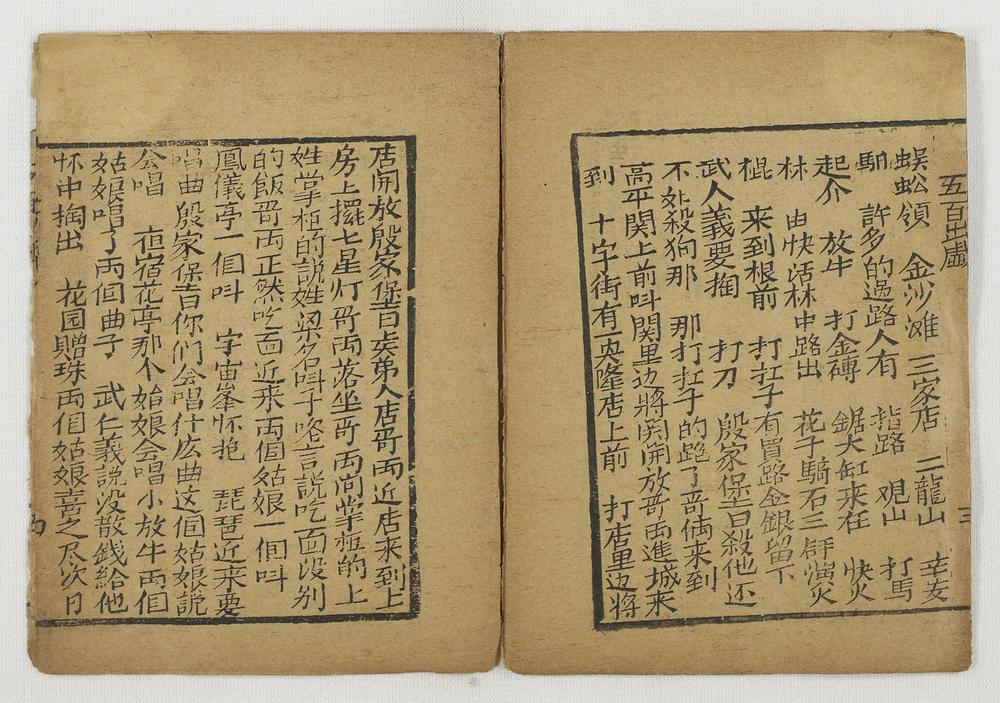 五百出戲
三
蜈蚣領　金沙滩　三家店　二龍山　幸安
馹　許多的過路人有　指路　观山　打馬
起介　放牛　打金磚　鋸大缸来在　快火
林　由快活林中路出　花子騎石三　演火
棍　来到根前　打扛子有買路金銀留下
武人義要掏　打刀　殷家堡吉殺他还
不处殺狗那　那打扛子的跑了哥俩来到
高平関上前呌関里边將関開放哥両進城来
到　十字街有一興隆店上前　打店里边將
店開放殷家堡吉美弟人店哥両近店来到上
房上擺七星灯哥両落坐哥両问掌柜的上
姓掌柜的説姓梁名呌子吃言說吃面没别
的飯哥両正然吃面近来両個姑娘一個呌
鳳儀亭一個呌　字宙峯怀抱　琵琶近来要
唱曲　殷家保吉你们会唱什庅曲这個姑娘説
会唱　夜宿花亭那个姑娘会唱小放牛両個
姑娘唱了両個曲子　武仁義説没散錢給他
怀中掏出　花园贈珠両個姑娘喜之不尽次日